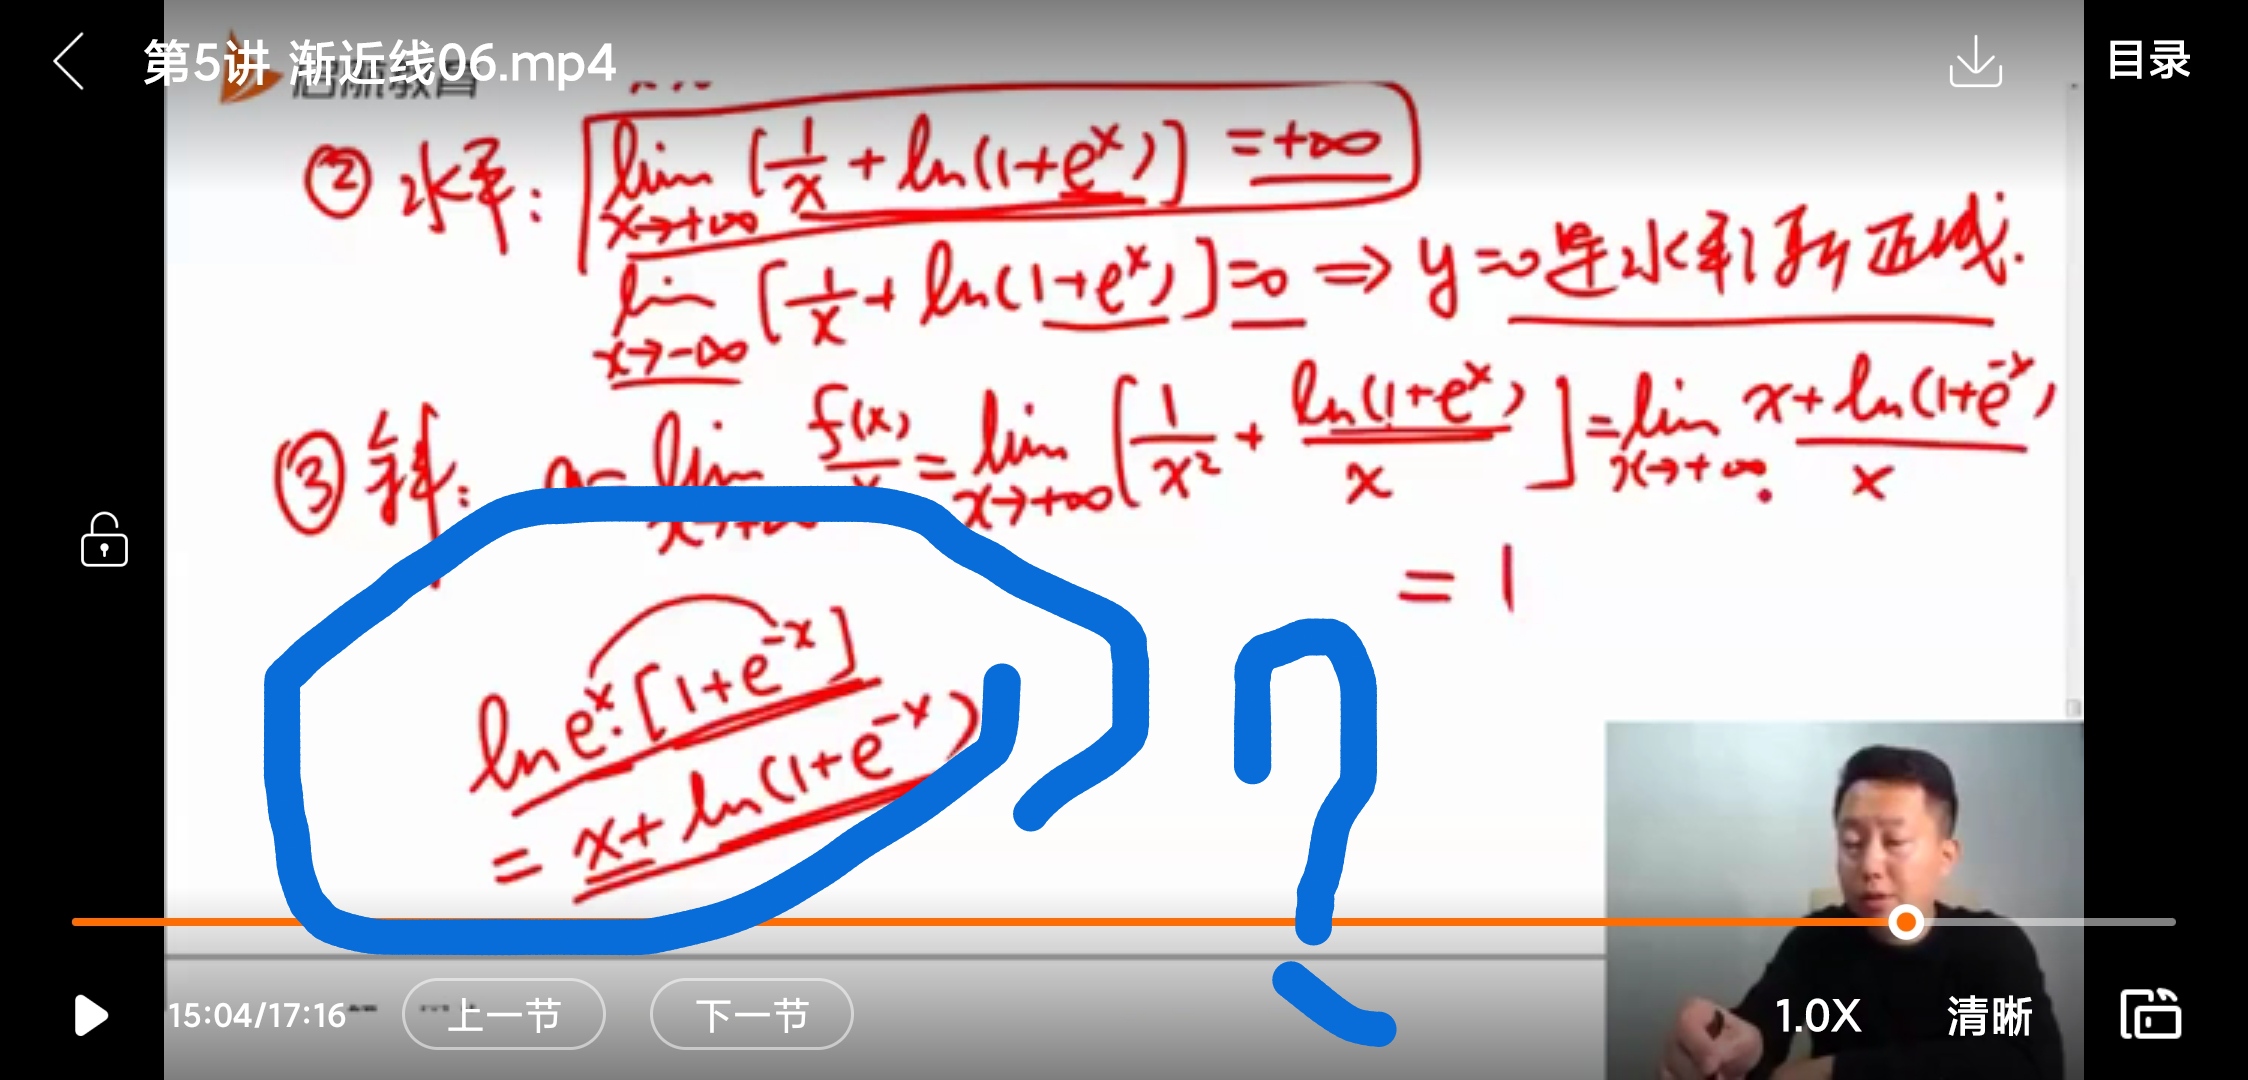 第5讲 渐近线06.mp4
目录
启航教育
② 水平: lim x→+∞ [1/x + ln(1+e^x)] = +∞
lim x→-∞ [1/x + ln(1+e^x)] = 0 ⇒ y=0是水平渐近线.
③ 斜: a = lim x→+∞ f(x)/x = lim x→+∞ [1/x² + ln(1+e^x)/x] = lim x→+∞ x+ln(1+e^-x)/x
= 1
ln e^x·[1+e^-x]
= x+ln(1+e^-x)
?
15:04/17:16
上一节
下一节
1.0X
清晰